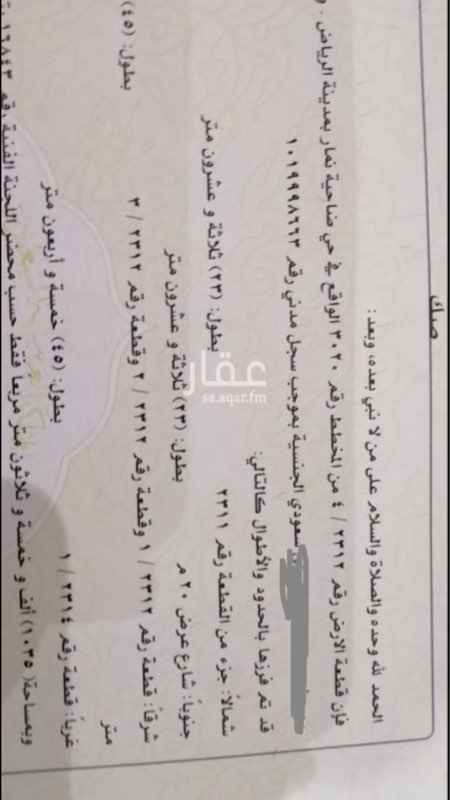 صك
الحمد لله وحده والصلاة والسلام على من لا نبي بعده، وبعد:
فإن قطعة الارض رقم ٢٣١٢ / ٤ من المخطط رقم ٣٠٢٠ الواقع في حي ضاحية نمار بمدينة الرياض .
سعودي الجنسية بموجب سجل مدني رقم ١٠١٩٩٩٨٦٦٣
قد تم فرزها بالحدود والأطوال كالتالي:
شمالاً: جزء من القطعة رقم ٢٣١١ بطول: (٢٣) ثلاثة و عشرون متر
جنوباً: شارع عرض ٢٠ م بطول: (٢٣) ثلاثة و عشرون متر
شرقاً: قطعة رقم ٢٣١٢ / ١ وقطعة رقم ٢٣١٢ / ٢ وقطعة رقم ٢٣١٢ / ٣ بطول: (٤٥)
متر
غرباً: قطعة رقم ٢٣١٤ / ١ بطول: (٤٥) خمسة و أربعون متر
وبمساحة: (١٠٣٥) ألف و خمسة و ثلاثون متر مربعا فقط حسب محضر اللجنة الفنية رقم ١٦٨٤٣
عقار
sa.aqar.fm